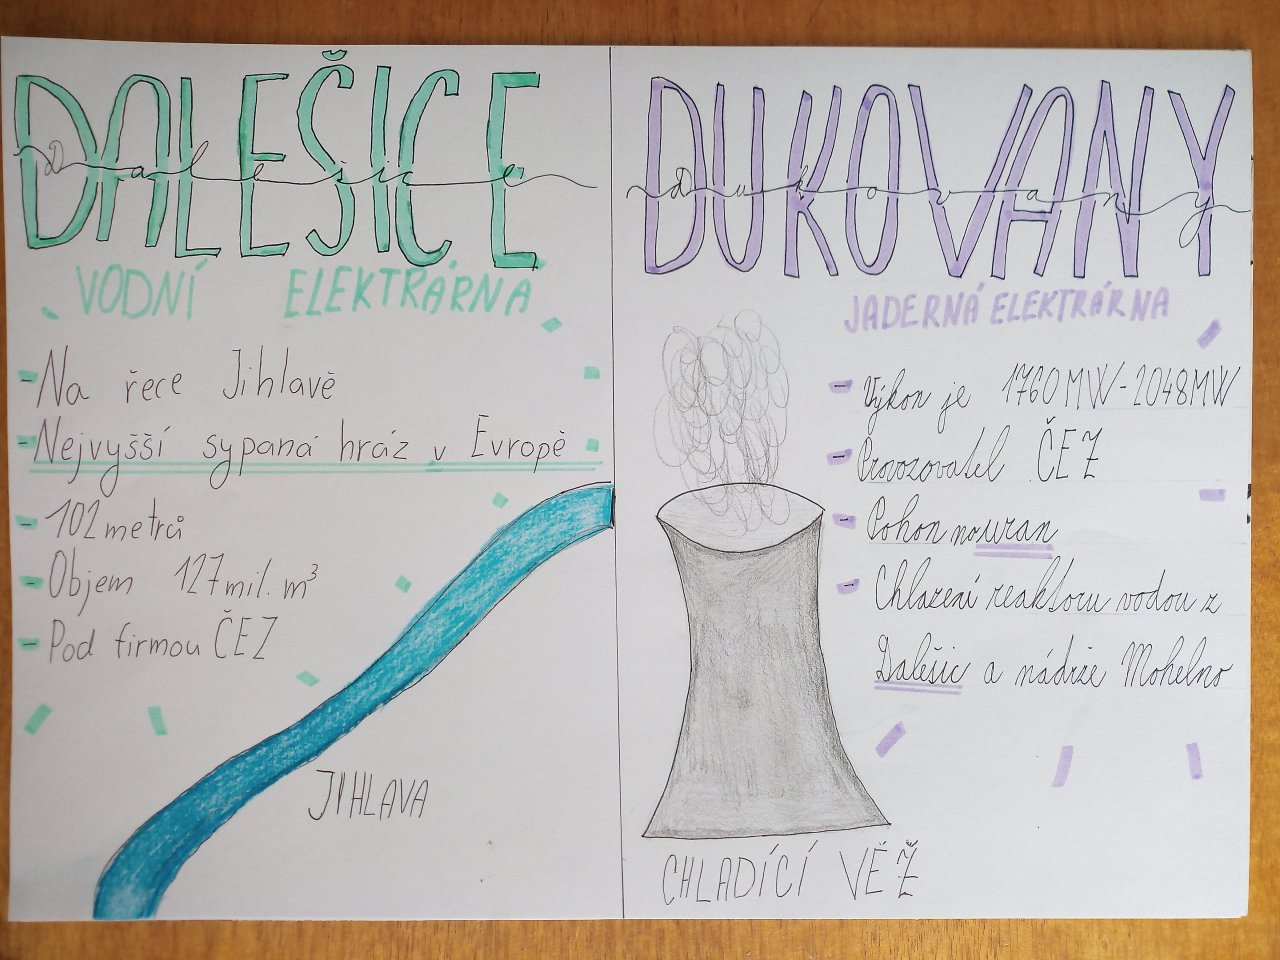 DALEŠICE
Dalešice
VODNÍ ELEKTRÁRNA
- Na řece Jihlavě
- Nejvyšší sypaná hráz v Evropě
- 102 metrů
- Objem 127 mil. m³
- Pod firmou ČEZ
JIHLAVA
DUKOVANY
Dukovany
JADERNÁ ELEKTRÁRNA
- Výkon je 1760MW-2048MW
- Provozovatel ČEZ
- Pohon na uran
- Chlazení reaktoru vodou z
Dalešic a nádrže Mohelno
CHLADÍCÍ VĚŽ